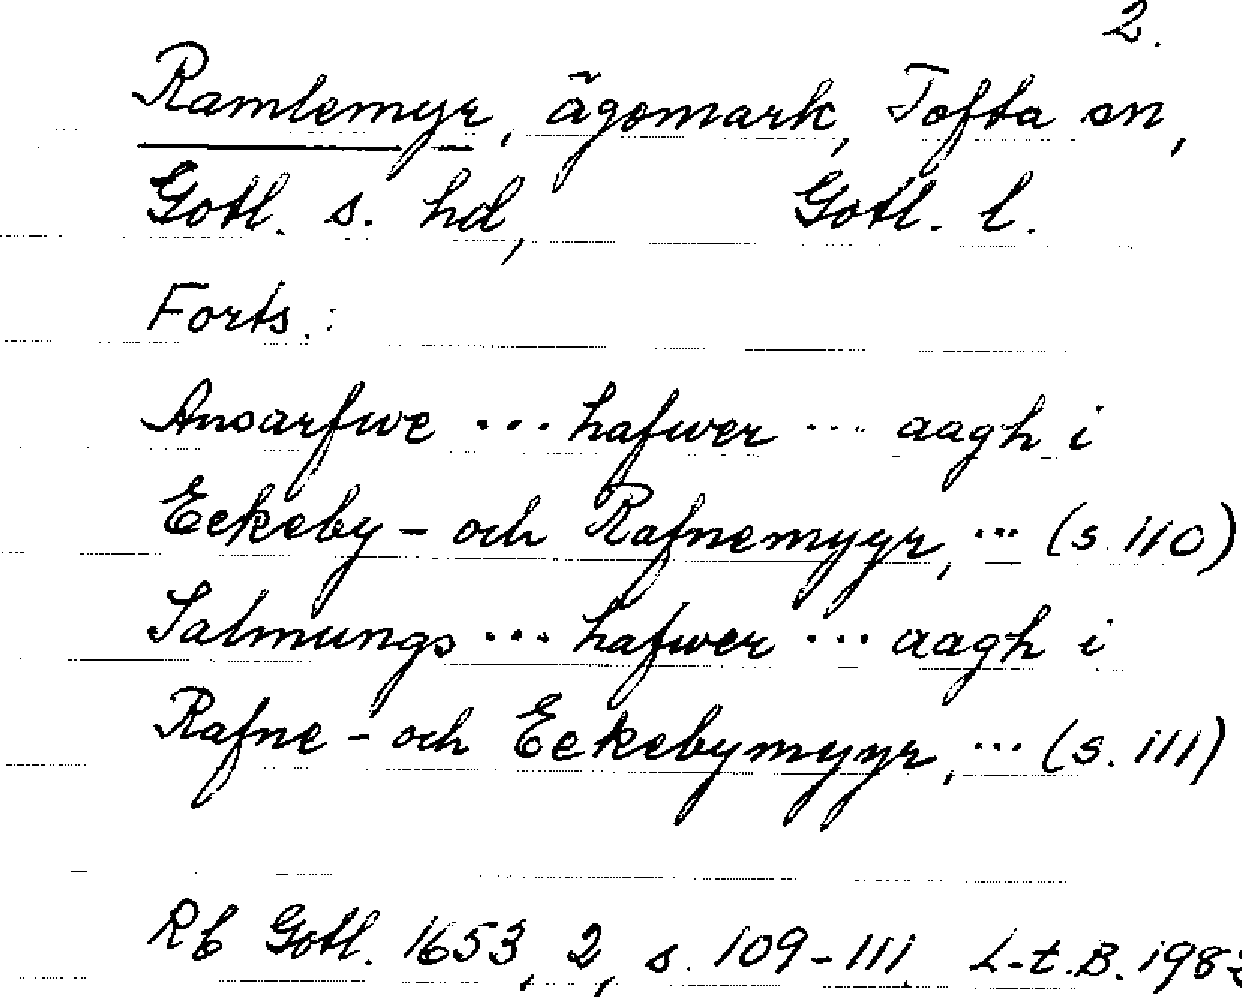 2.
Ramlemyr, ägomark, Tofta sn,
Gotl. s. hd, Gotl. l.
Forts.:
Ansarfwe ... hafwer ... aagh i
Eckeby- och Rafnemyyr, ... (s. 110)
Salmungs ... hafwer ... aagh i
Rafne- och Eckebymyyr, ... (s. 111)
Rb Gotl. 1653, 2, s. 109-111. L-t.B.